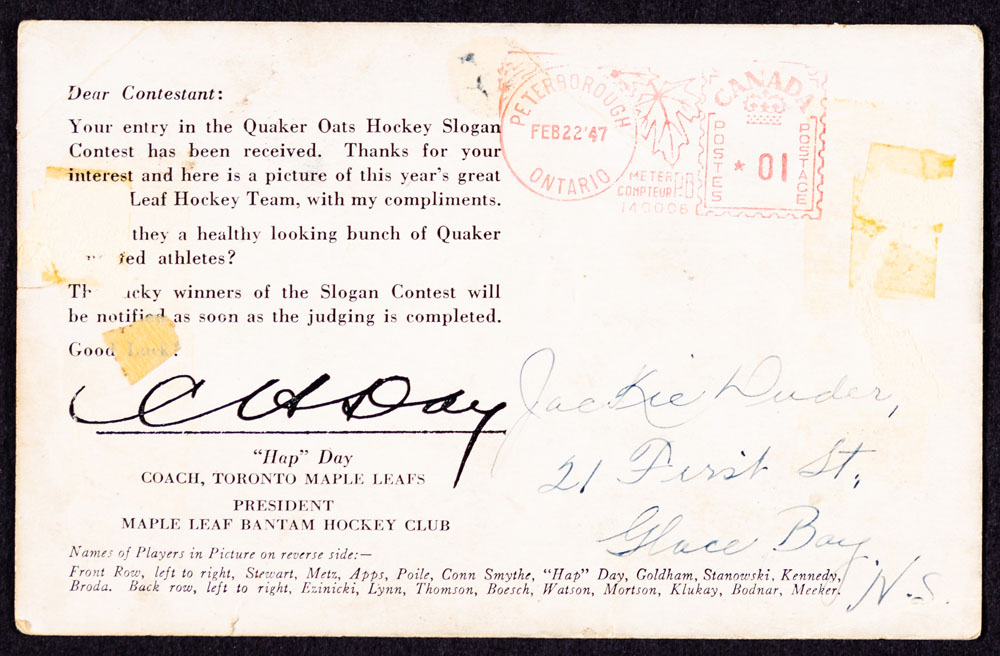 Dear Contestant:
Your entry in the Quaker Oats Hockey Slogan
Contest has been received. Thanks for your
interest and here is a picture of this year's great
Leaf Hockey Team, with my compliments.
they a healthy looking bunch of Quaker
ed athletes?
Th ucky winners of the Slogan Contest will
be notified as soon as the judging is completed.
Good Luck!
C H Day
"Hap" Day
COACH, TORONTO MAPLE LEAFS
PRESIDENT
MAPLE LEAF BANTAM HOCKEY CLUB
Names of Players in Picture on reverse side:—
Front Row, left to right, Stewart, Metz, Apps, Poile, Conn Smythe, "Hap" Day, Goldham, Stanowski, Kennedy,
Broda. Back row, left to right, Ezinicki, Lynn, Thomson, Boesch, Watson, Mortson, Klukay, Bodnar, Meeker.
PETERBOROUGH
FEB 22 '47
ONTARIO
METER
COMPTEUR
CANADA
POSTES
* 01
POSTAGE
Jackie Duder,
21 First St.,
Glace Bay,
N.S.